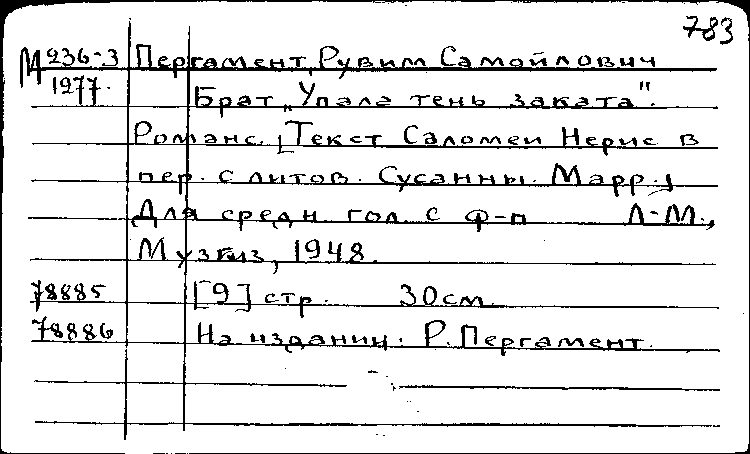 783
М 236-3 Пергамент, Рувим Самойлович
1977. Брат „Упала тень заката".
Романс. [Текст Саломеи Нерис в
пер. с литов. Сусанны Марр.]
Для средн. гол. с ф-п Л-М.,
Музгиз, 1948.
78885 [9] стр. 30 см.
78886 На издании: Р. Пергамент.